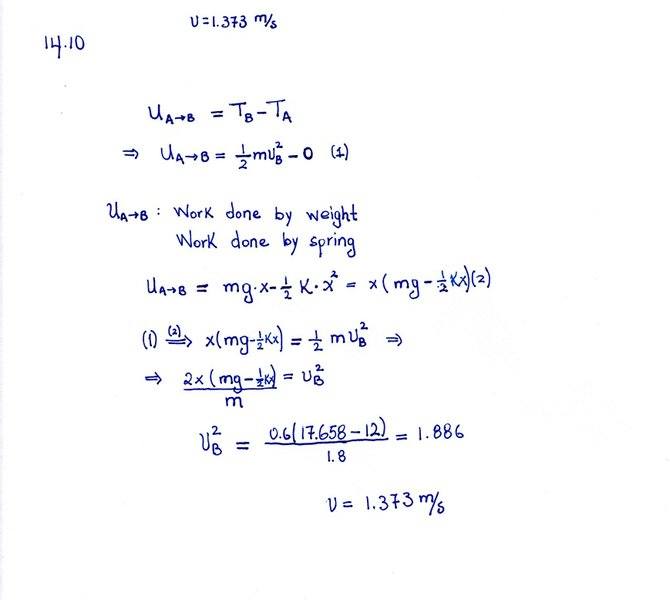 υ=1.373 m/s
14.10
U_A→B = T_B-T_A
⇒ U_A→B = 1/2 mυ_B^2 - 0 (1)
U_A→B : Work done by weight
Work done by spring
U_A→B = mg·x - 1/2 K·x^2 = x(mg - 1/2 Kx)(2)
(1) (2)⇒ x(mg-1/2Kx) = 1/2 mυ_B^2 ⇒
⇒ 2x(mg-1/2Kx)/m = υ_B^2
υ_B^2 = 0.6(17.658-12)/1.8 = 1.886
υ = 1.373 m/s